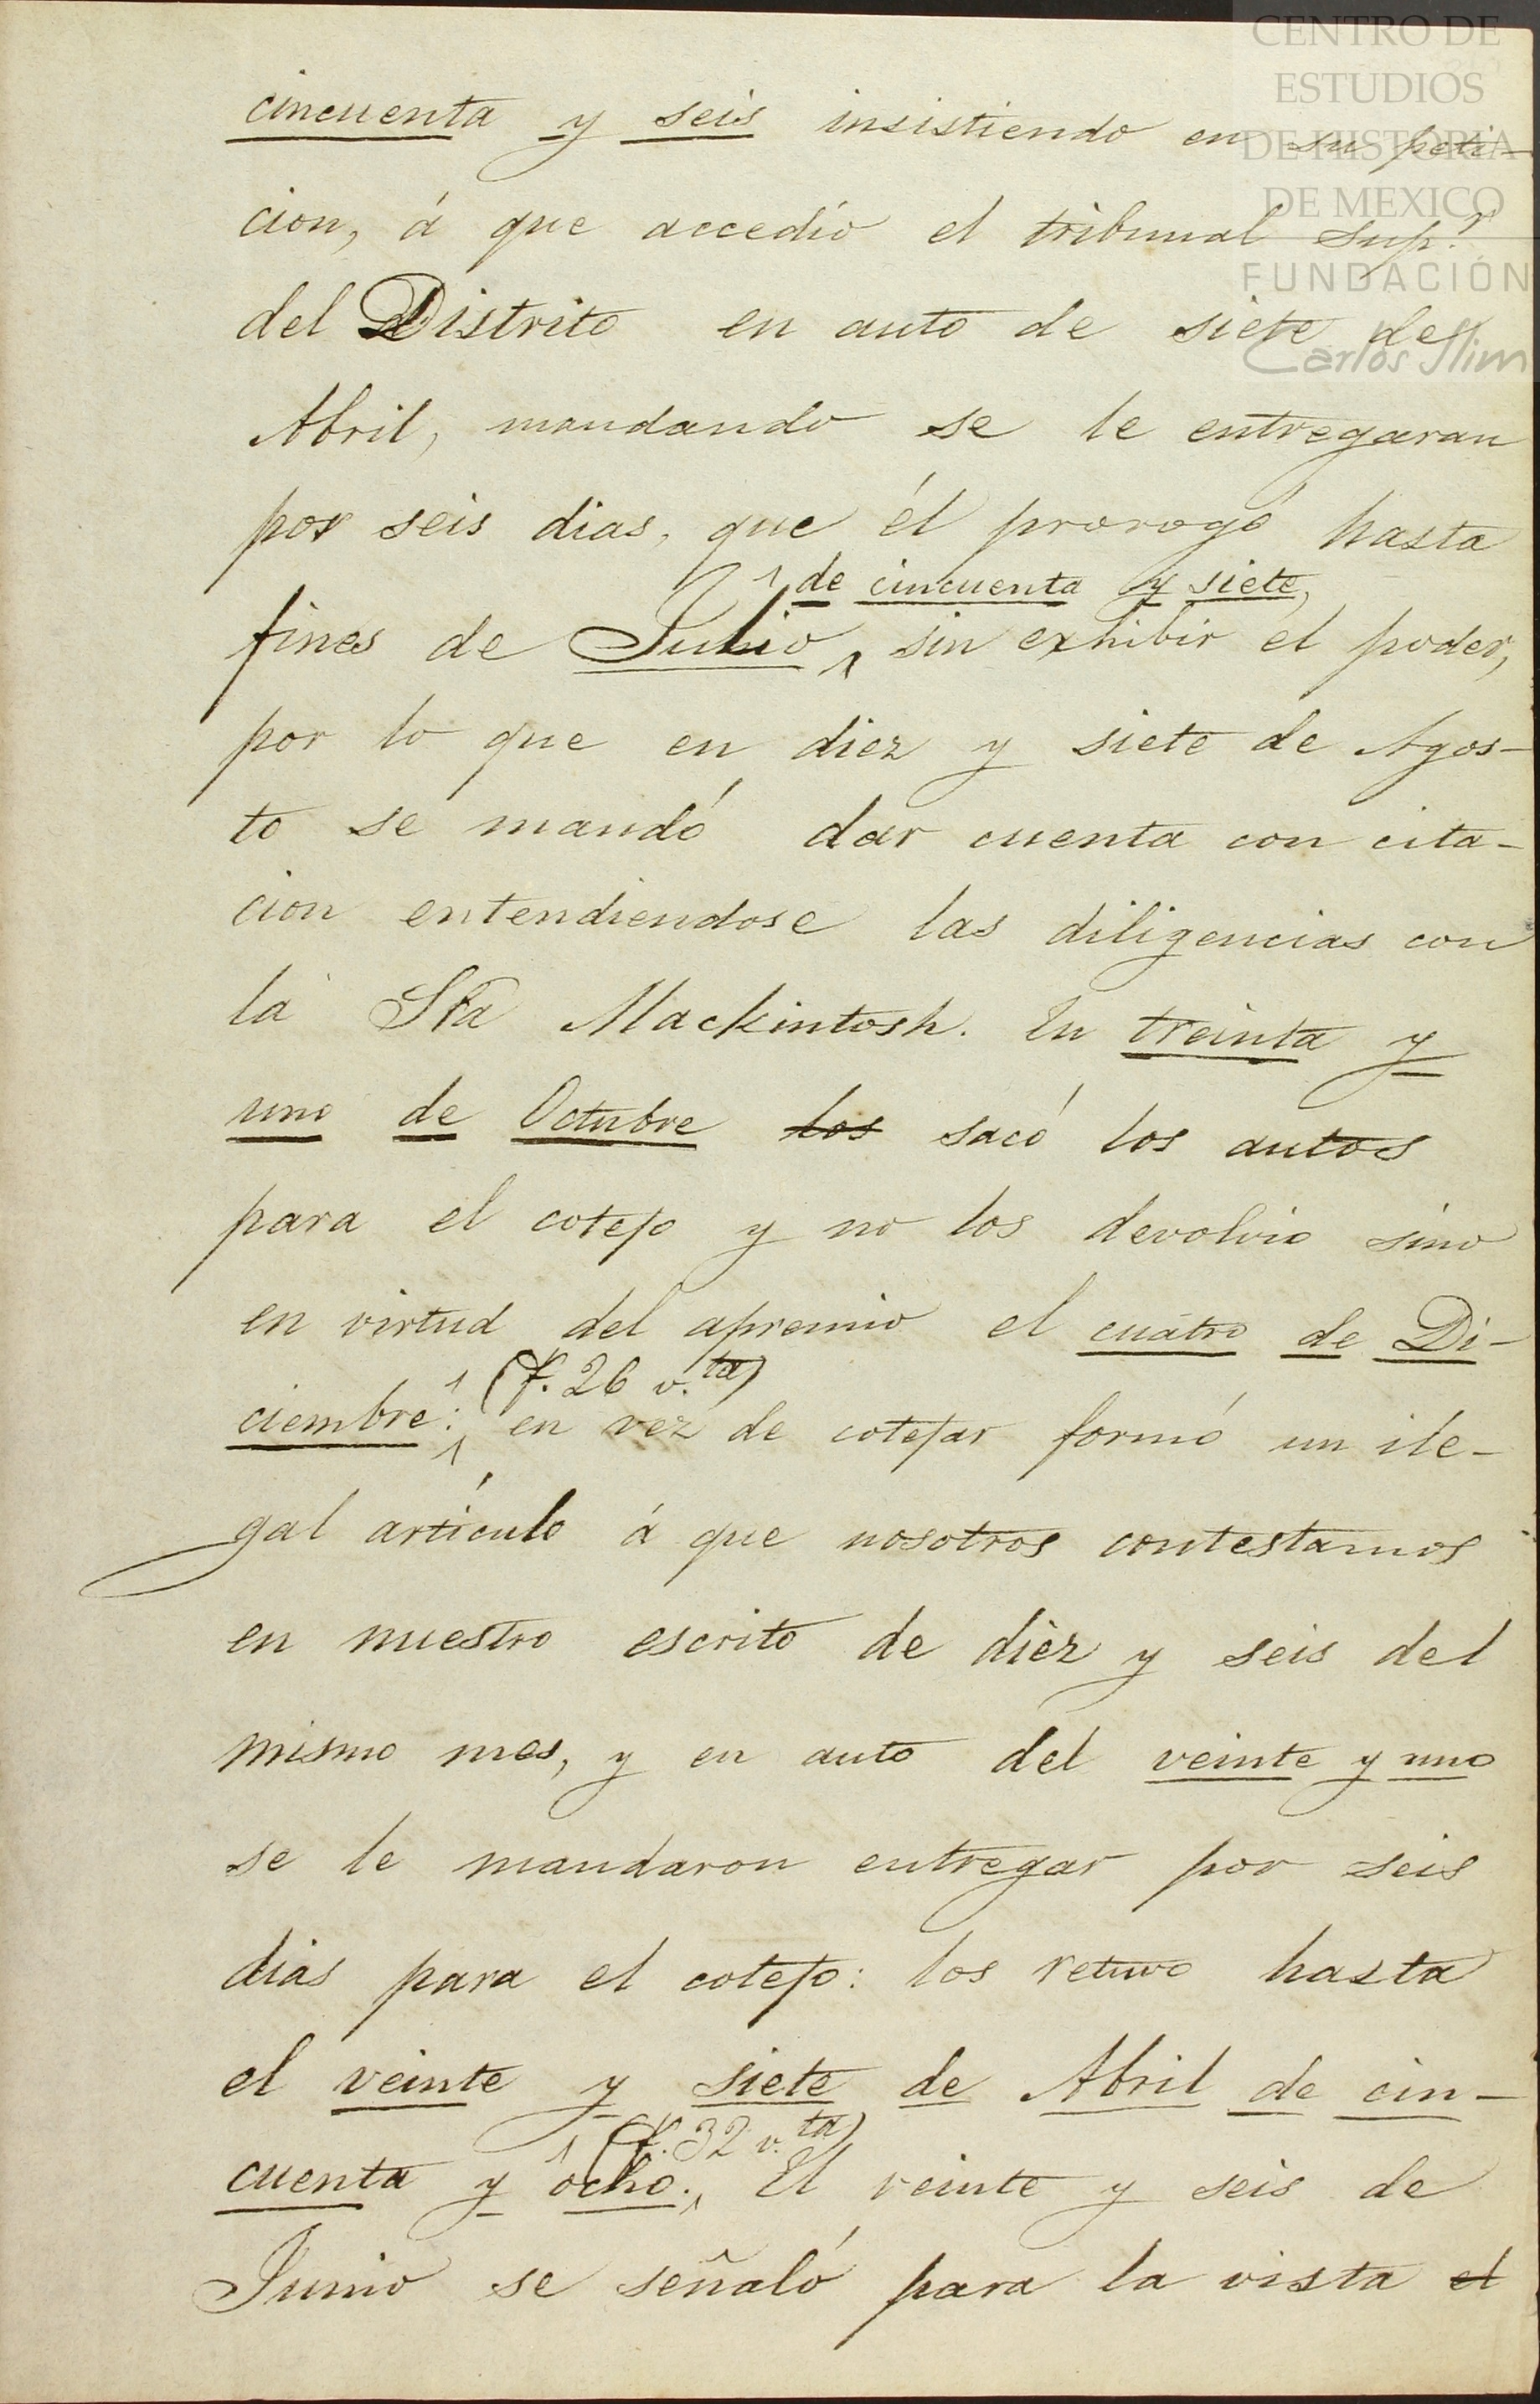 CENTRO DE
ESTUDIOS
DE HISTORIA
DE MEXICO
FUNDACIÓN
Carlos Slim
cincuenta y seis insistiendo en su peti-
cion, á que accedió el tribunal Sup.r
del Distrito en auto de siete de
Abril, mandando se le entregaran
por seis dias, que él prorogó hasta
de cincuenta y siete,
fines de Julio, sin exhibir el poder,
por lo que en diez y siete de Agos-
to se mandó dar cuenta con cita-
cion entendiendose las diligencias con
la Sra Mackintosh. En treinta y
uno de Octubre los sacó los autos
para el cotejo y no los devolvio sino
en virtud del apremio el cuatro de Di-
(f. 26 v.ta)
ciembre: en vez de cotejar formó un ile-
gal artículo á que nosotros contestamos
en nuestro escrito de diez y seis del
mismo mes, y en auto del veinte y uno
se le mandaron entregar por seis
dias para el cotejo: los retuvo hasta
el veinte y siete de Abril de cin-
(f. 32 v.ta)
cuenta y ocho. El veinte y seis de
Junio se señaló para la vista el